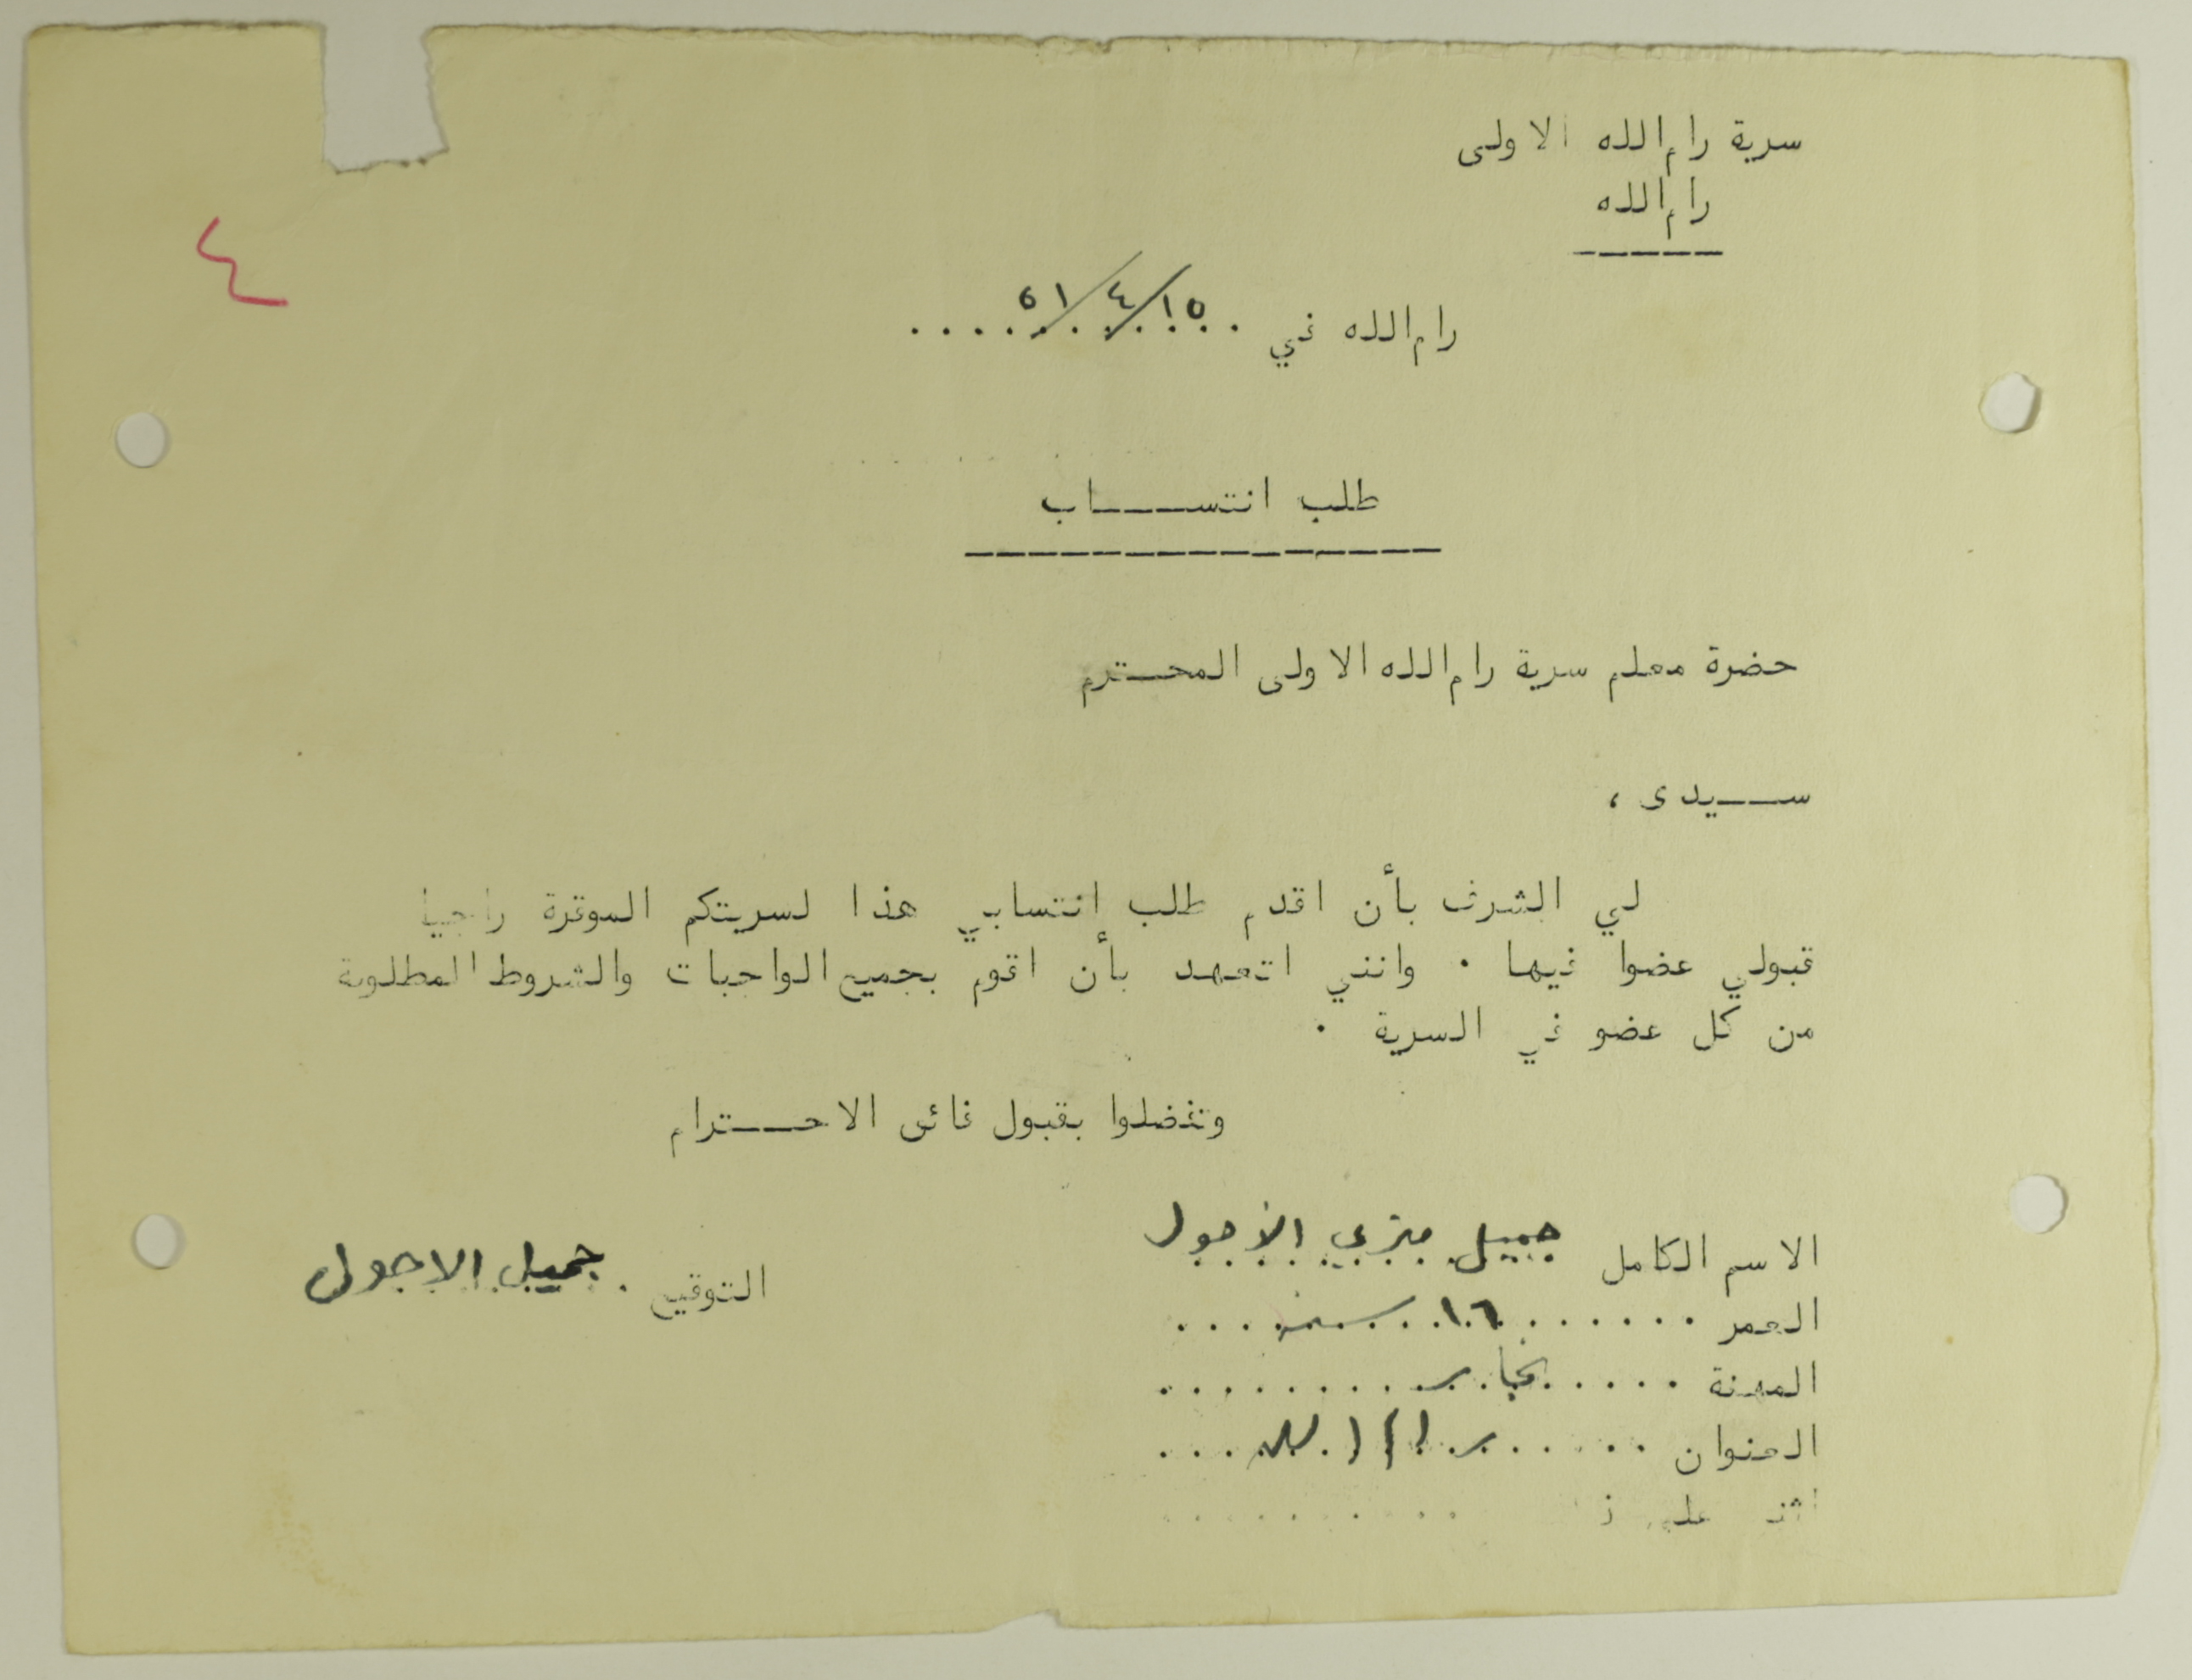 سرية رام الله الاولى
رام الله
٤
رام الله في ١٥/٤/٥١
طلب انتســـــاب
حضرة معلم سرية رام الله الاولى المحـــترم
ســـيدى ،
لي الشرف بأن اقدم طلب إنتسابي هذا لسريتكم الموقرة راجيا
قبولي عضوا فيها . وانني اتعهد بأن اقوم بجميع الواجبات والشروط المطلوبة
من كل عضو في السرية .
وتفضلوا بقبول فائق الاحـــترام
الاسم الكامل جميل متري الأجول
التوقيع جميل الاجول
العمر ١٦ سنه
المهنة نجار
العنوان رام الله